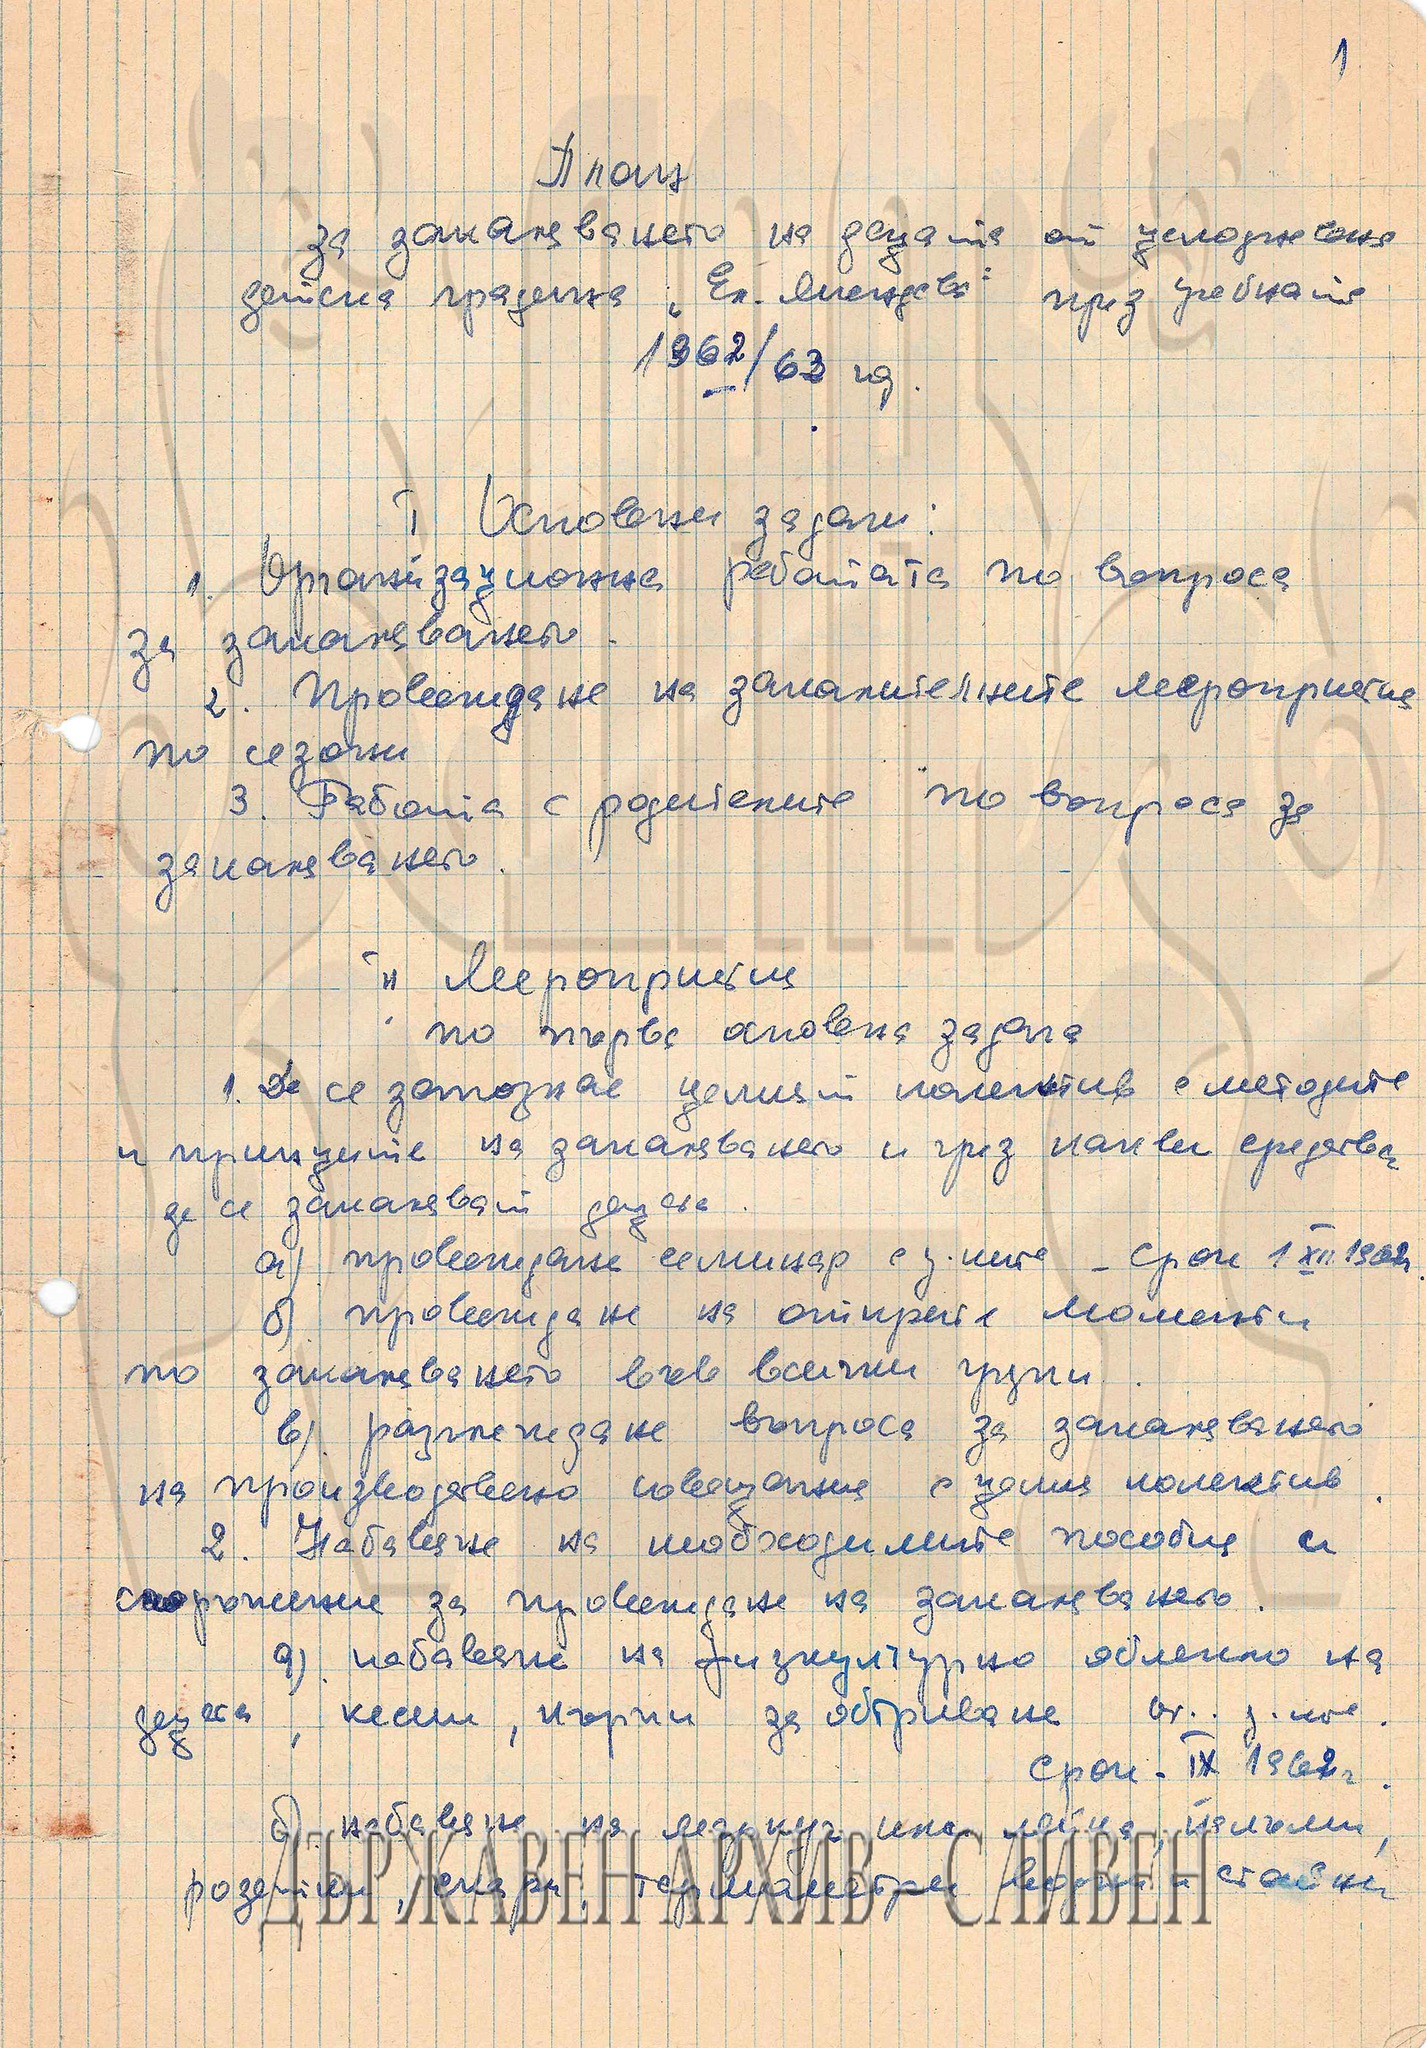 1
План
за закаляването на децата от целодневна
детска градина „Ел. Мендева" през учебната
1962/63 год.
I Основни задачи:
1. Организационна работата по въпроса
за закаляването.
2. Провеждане на закалителните мероприятия
по сезони
3. Работа с родителите по въпроса за
закаляването.
II Мероприятия
по първа основна задача
1. Да се запознае целият колектив с методите
и принципите на закаляването и чрез какви средства
да се закаляват децата.
а) провеждане семинар с у.ките – срок 1 XII 1962г.
б) провеждане на открити моменти
по закаляването във всички групи.
в) разглеждане въпроса за закаляването
на производствено совещание с целия колектив.
2. Набавяне на необходимите пособия и
съоръжения за провеждане на закаляването.
а) набавяне на физкултурно облекло на
децата, кесии, кърпи за обтриване
срок - IX 1962г.
б) набавяне на лейка, налъми,
розетки, скари, термометри водни и стайни
ДЪРЖАВЕН АРХИВ - СЛИВЕН